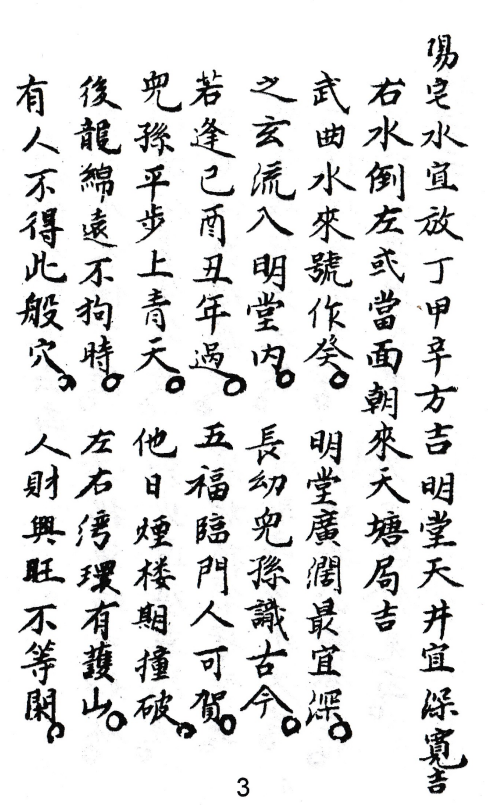 陽宅水宜放丁甲辛方吉明堂天井宜深寬吉
右水倒左或當面朝來天塘局吉
武曲水來號作癸。明堂廣濶最宜深。
之玄流入明堂內。長幼兒孫識古今。
若逢己酉丑年過。五福臨門人可賀。
兒孫平步上青天。他日煙楼期撞破。
後龍綿遠不狗時。左右湾環有護山。
有人不得此般穴。人財興旺不等閑。
3